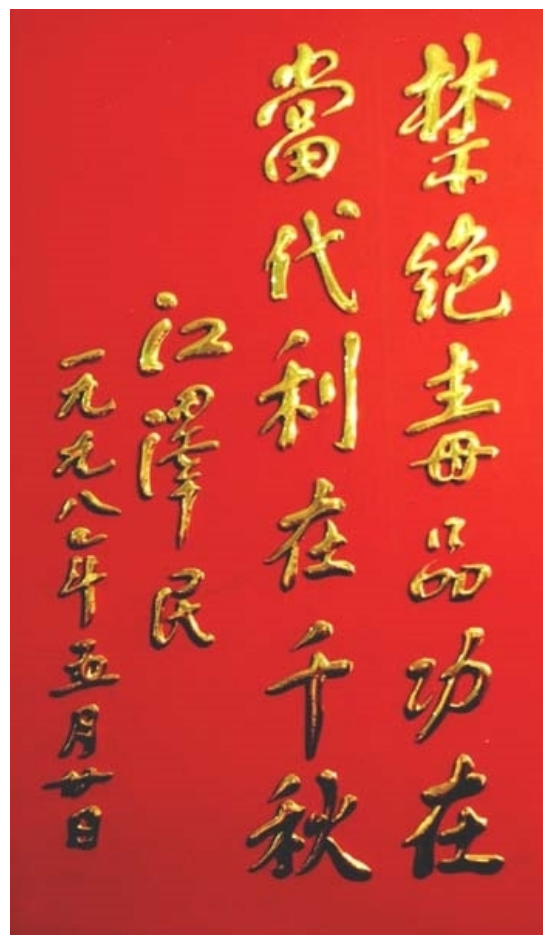 禁絕毒品功在
當代利在千秋
江澤民
一九九八年五月廿日